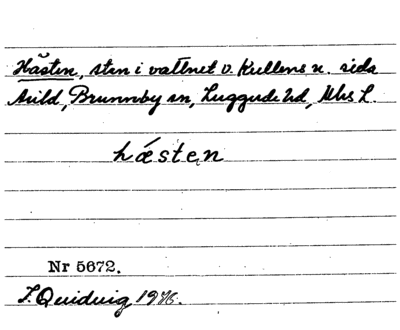 Hästen, sten i vattnet v. Kullens n. sida
Arild, Brunnby sn, Luggude hd, Mhs L.
hǽsten
Nr 5672.
I. Quidvig 1976.